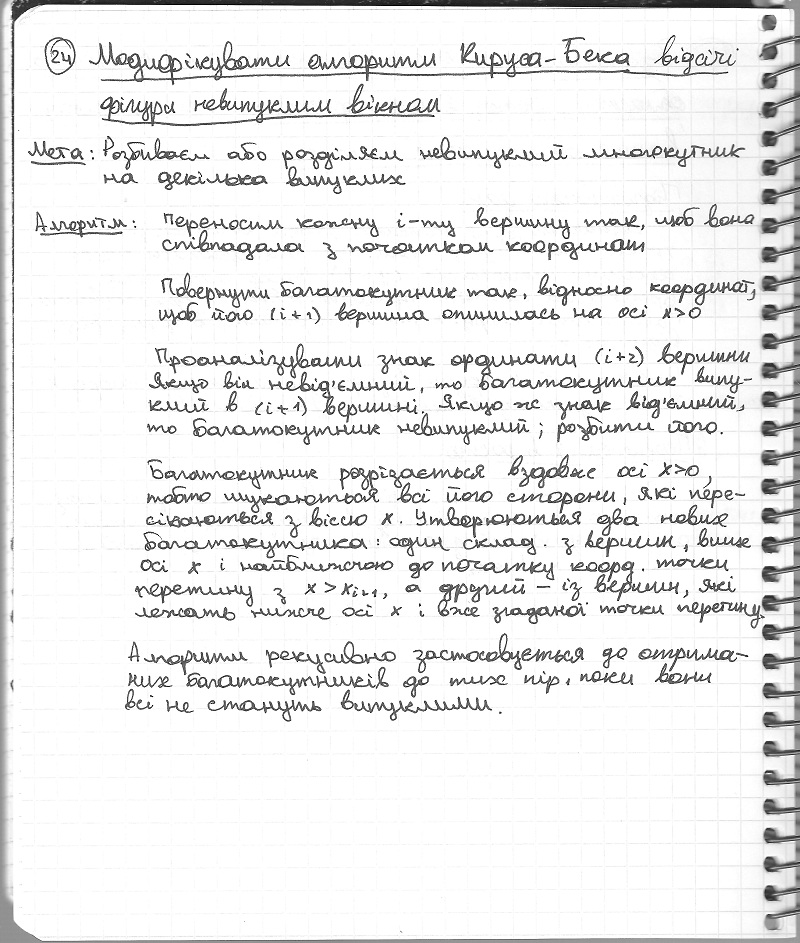 24 Модифікувати алгоритм Кируса-Бека відсічі
фігури невипуклим вікном
Мета: Розбиваєм або розділяєм невипуклий многокутник
на декілька випуклих
Алгоритм: переносим кожну i-ту вершину так, щоб вона
співпадала з початком координат
Повернути багатокутник так, відносно координат,
щоб його (i+1) вершина опинилась на осі x>0
Проаналізувати знак ординати (i+2) вершини
Якщо він невід'ємний, то багатокутник випу-
клий в (i+1) вершині. Якщо ж знак від'ємний,
то багатокутник невипуклий; розбити його.
Багатокутник розрізається вздовж осі x>0,
тобто шукаються всі його сторони, які пере-
сікаються з віссю x. Утворюються два нових
багатокутника: один склад. з вершин, вище
осі x і найближчою до початку коорд. точки
перетину з x>xi+1, а другий – із вершин, які
лежать нижче осі x і вже згаданої точки перетину.
Алгоритм рекусивно застосовується до отрима-
них багатокутників до тих пір, поки вони
всі не стануть випуклими.